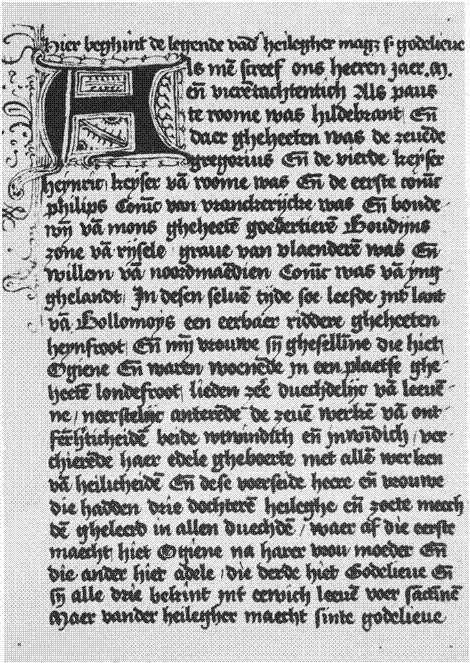 Hier beghint de legende vā d' heilegher magz s godelieue
Als mē screef ons heeren jaer .M.
eñ vierētachtentich Als paus
te roome was hildebrant Eñ
daer gheheeten was de zeuēde
gregorius Eñ de vierde keyser
heynric keyser vā roome was Eñ de eerste coninc
philips Coninc van vranckerijcke was Eñ boude
wijn vā mons gheheetē goedertierē Boudijns
zone vā rijsele graue van vlaenderē was Eñ
willem vā noordmaddien Coninc was vā yng
ghelandt In desen seluē tijde soe leefde jnt lant
vā Bollomoys een eerbaer riddere gheheeten
heynfroot Eñ mijn vrouwe sijn ghesellīne die hiet
Ogiene Eñ waren woenēde jn een plaetse ghe
heetē londefroot lieden zeer duechdelijc vā leeuē
ne neerstelijc anterēde de zeuē werkē vā ont
fērhticheidē beide wtwindich eñ jnwīdich ver
chierēde haer edele gheboerte met allē werken
vā heilicheidē Eñ dese voerseide heere eñ vrouwe
die hadden drie dochterē heileghe eñ zoete meech
dē gheleerd in allen duechdē waer af die eerste
maecht hiet Ogiene na harer vrou moeder Eñ
die ander hiet adele die derde hiet Godelieue Eñ
sijn alle drie bekint jnt eewich leeuē voer sāctinnē
Maer vander heilegher maecht sinte godelieue